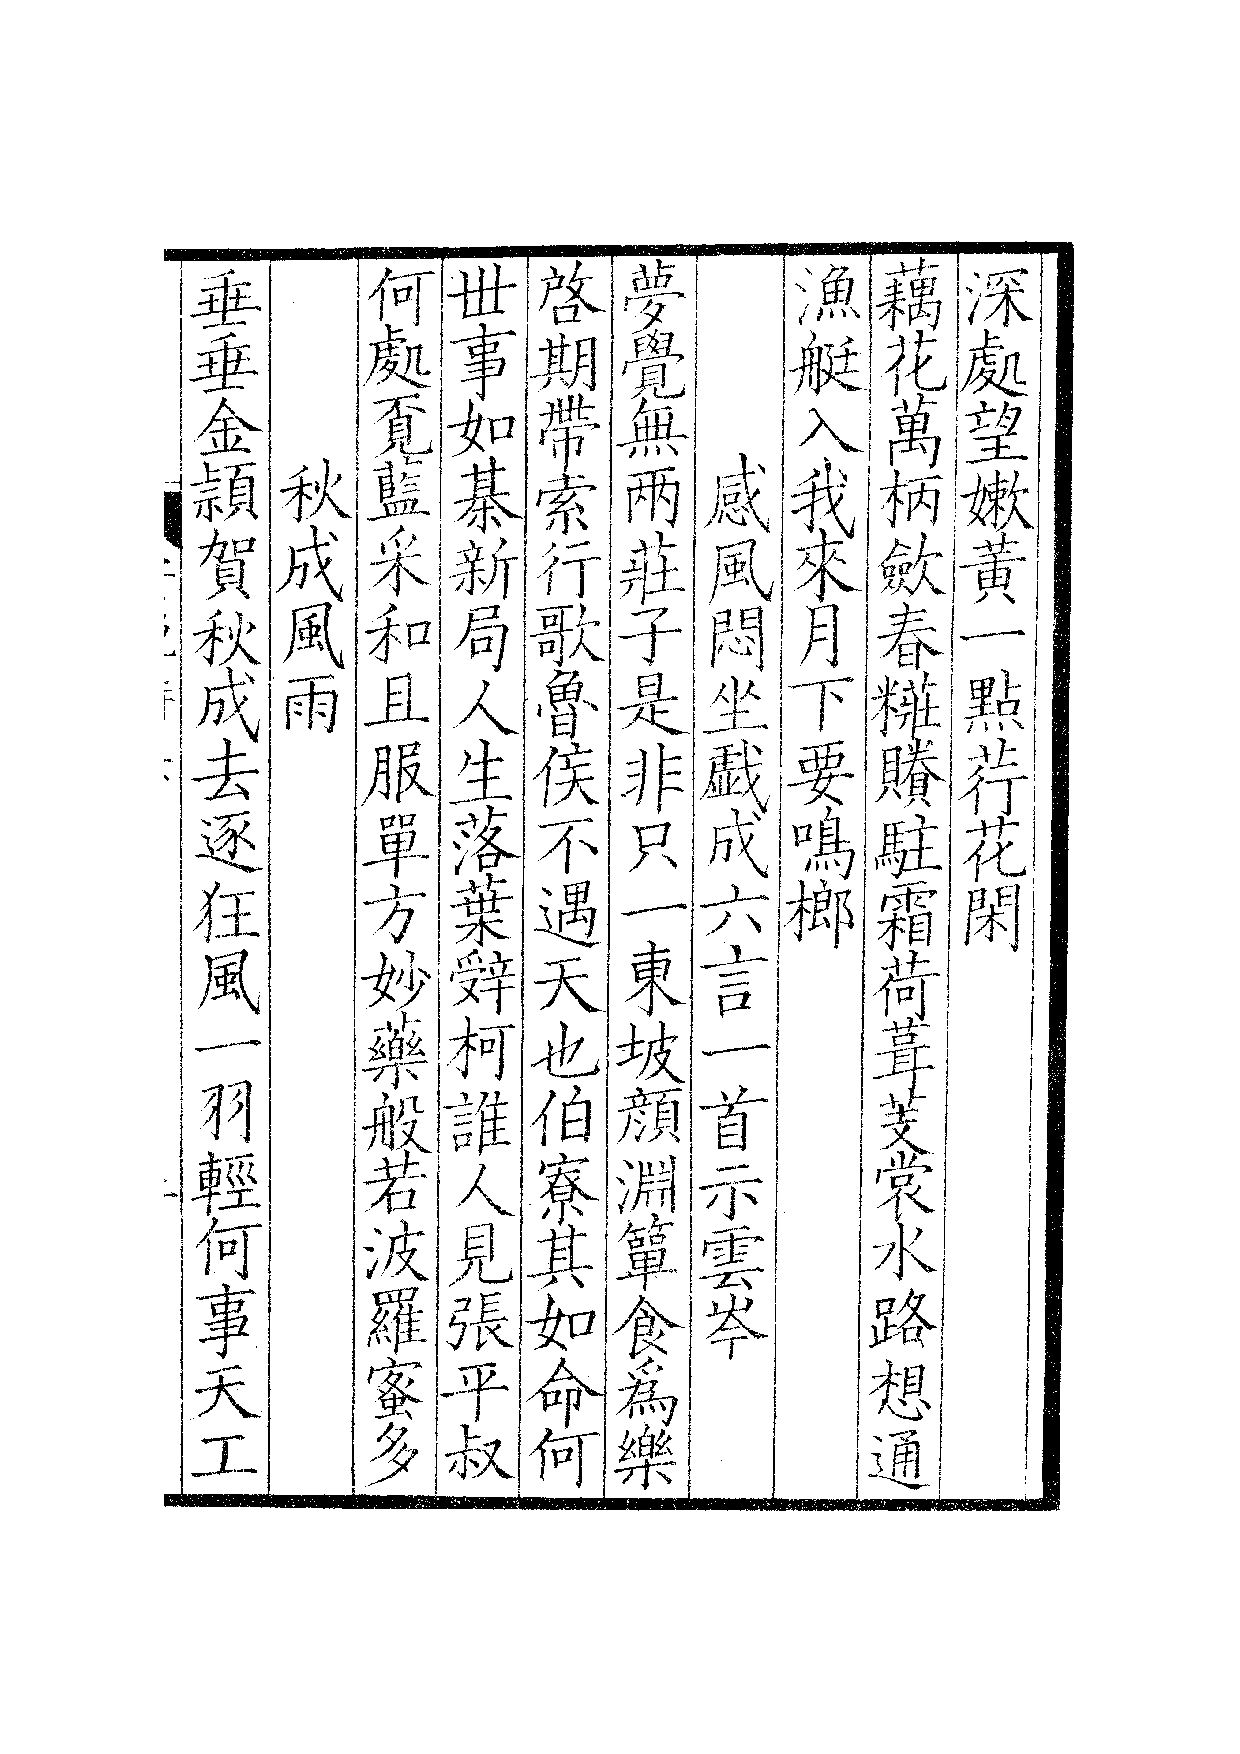 深處望嫰黄一點荇花閑
藕花萬柄斂春糚賸駐霜荷葺芰裳水路想通
漁艇入我來月下要鳴榔
感風悶坐戲成六言一首示雲岑
夢覺無兩莊子是非只一東坡顔淵簞食爲樂
啓期帶索行歌魯侯不遇天也伯寮其如命何
丗事如棊新局人生落葉辤柯誰人見張平叔
何處覔藍采和且服單方妙藥般若波羅蜜多
秋成風雨
垂垂金穎賀秋成去逐狂風一羽輕何事天工